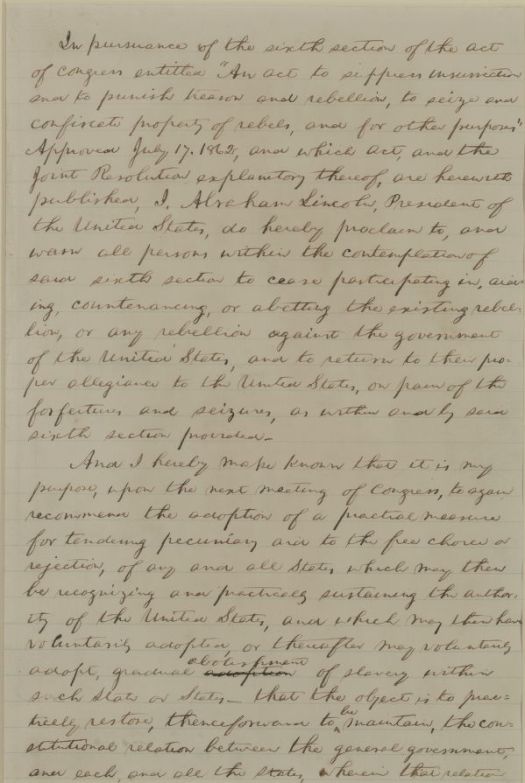 In pursuance of the sixth section of the act
of congress entitled "An act to suppress insurrection
and to punish treason and rebellion, to seize and
confiscate property of rebels, and for other purposes"
Approved July 17. 1862, and which act, and the
Joint Resolution explanatory thereof, are herewith
published, I, Abraham Lincoln, President of
the United States, do hereby proclaim to, and
warn all persons within the contemplation of
said sixth section to cease participating in, aid-
ing, countenancing, or abetting the existing rebel-
lion, or any rebellion against the government
of the United States, and to return to their pro-
per allegiance to the United States, on pain of the
forfeitures and seizures, as within and by said
sixth section provided—
And I hereby make known that it is my
purpose, upon the next meeting of Congress, to again
recommend the adoption of a practical measure
for tendering pecuniary aid to the free choice or
rejection, of any and all States which may then
be recognizing and practically sustaining the author-
ity of the United States, and which may then have
voluntarily adopted, or thereafter may voluntarily
abolishment
adopt, gradual adoption of slavery within
such State or States— that the object is to prac-
be
tically restore, thenceforward to maintain, the con-
stitutional relation between the general government,
and each, and all the states, wherein that relation